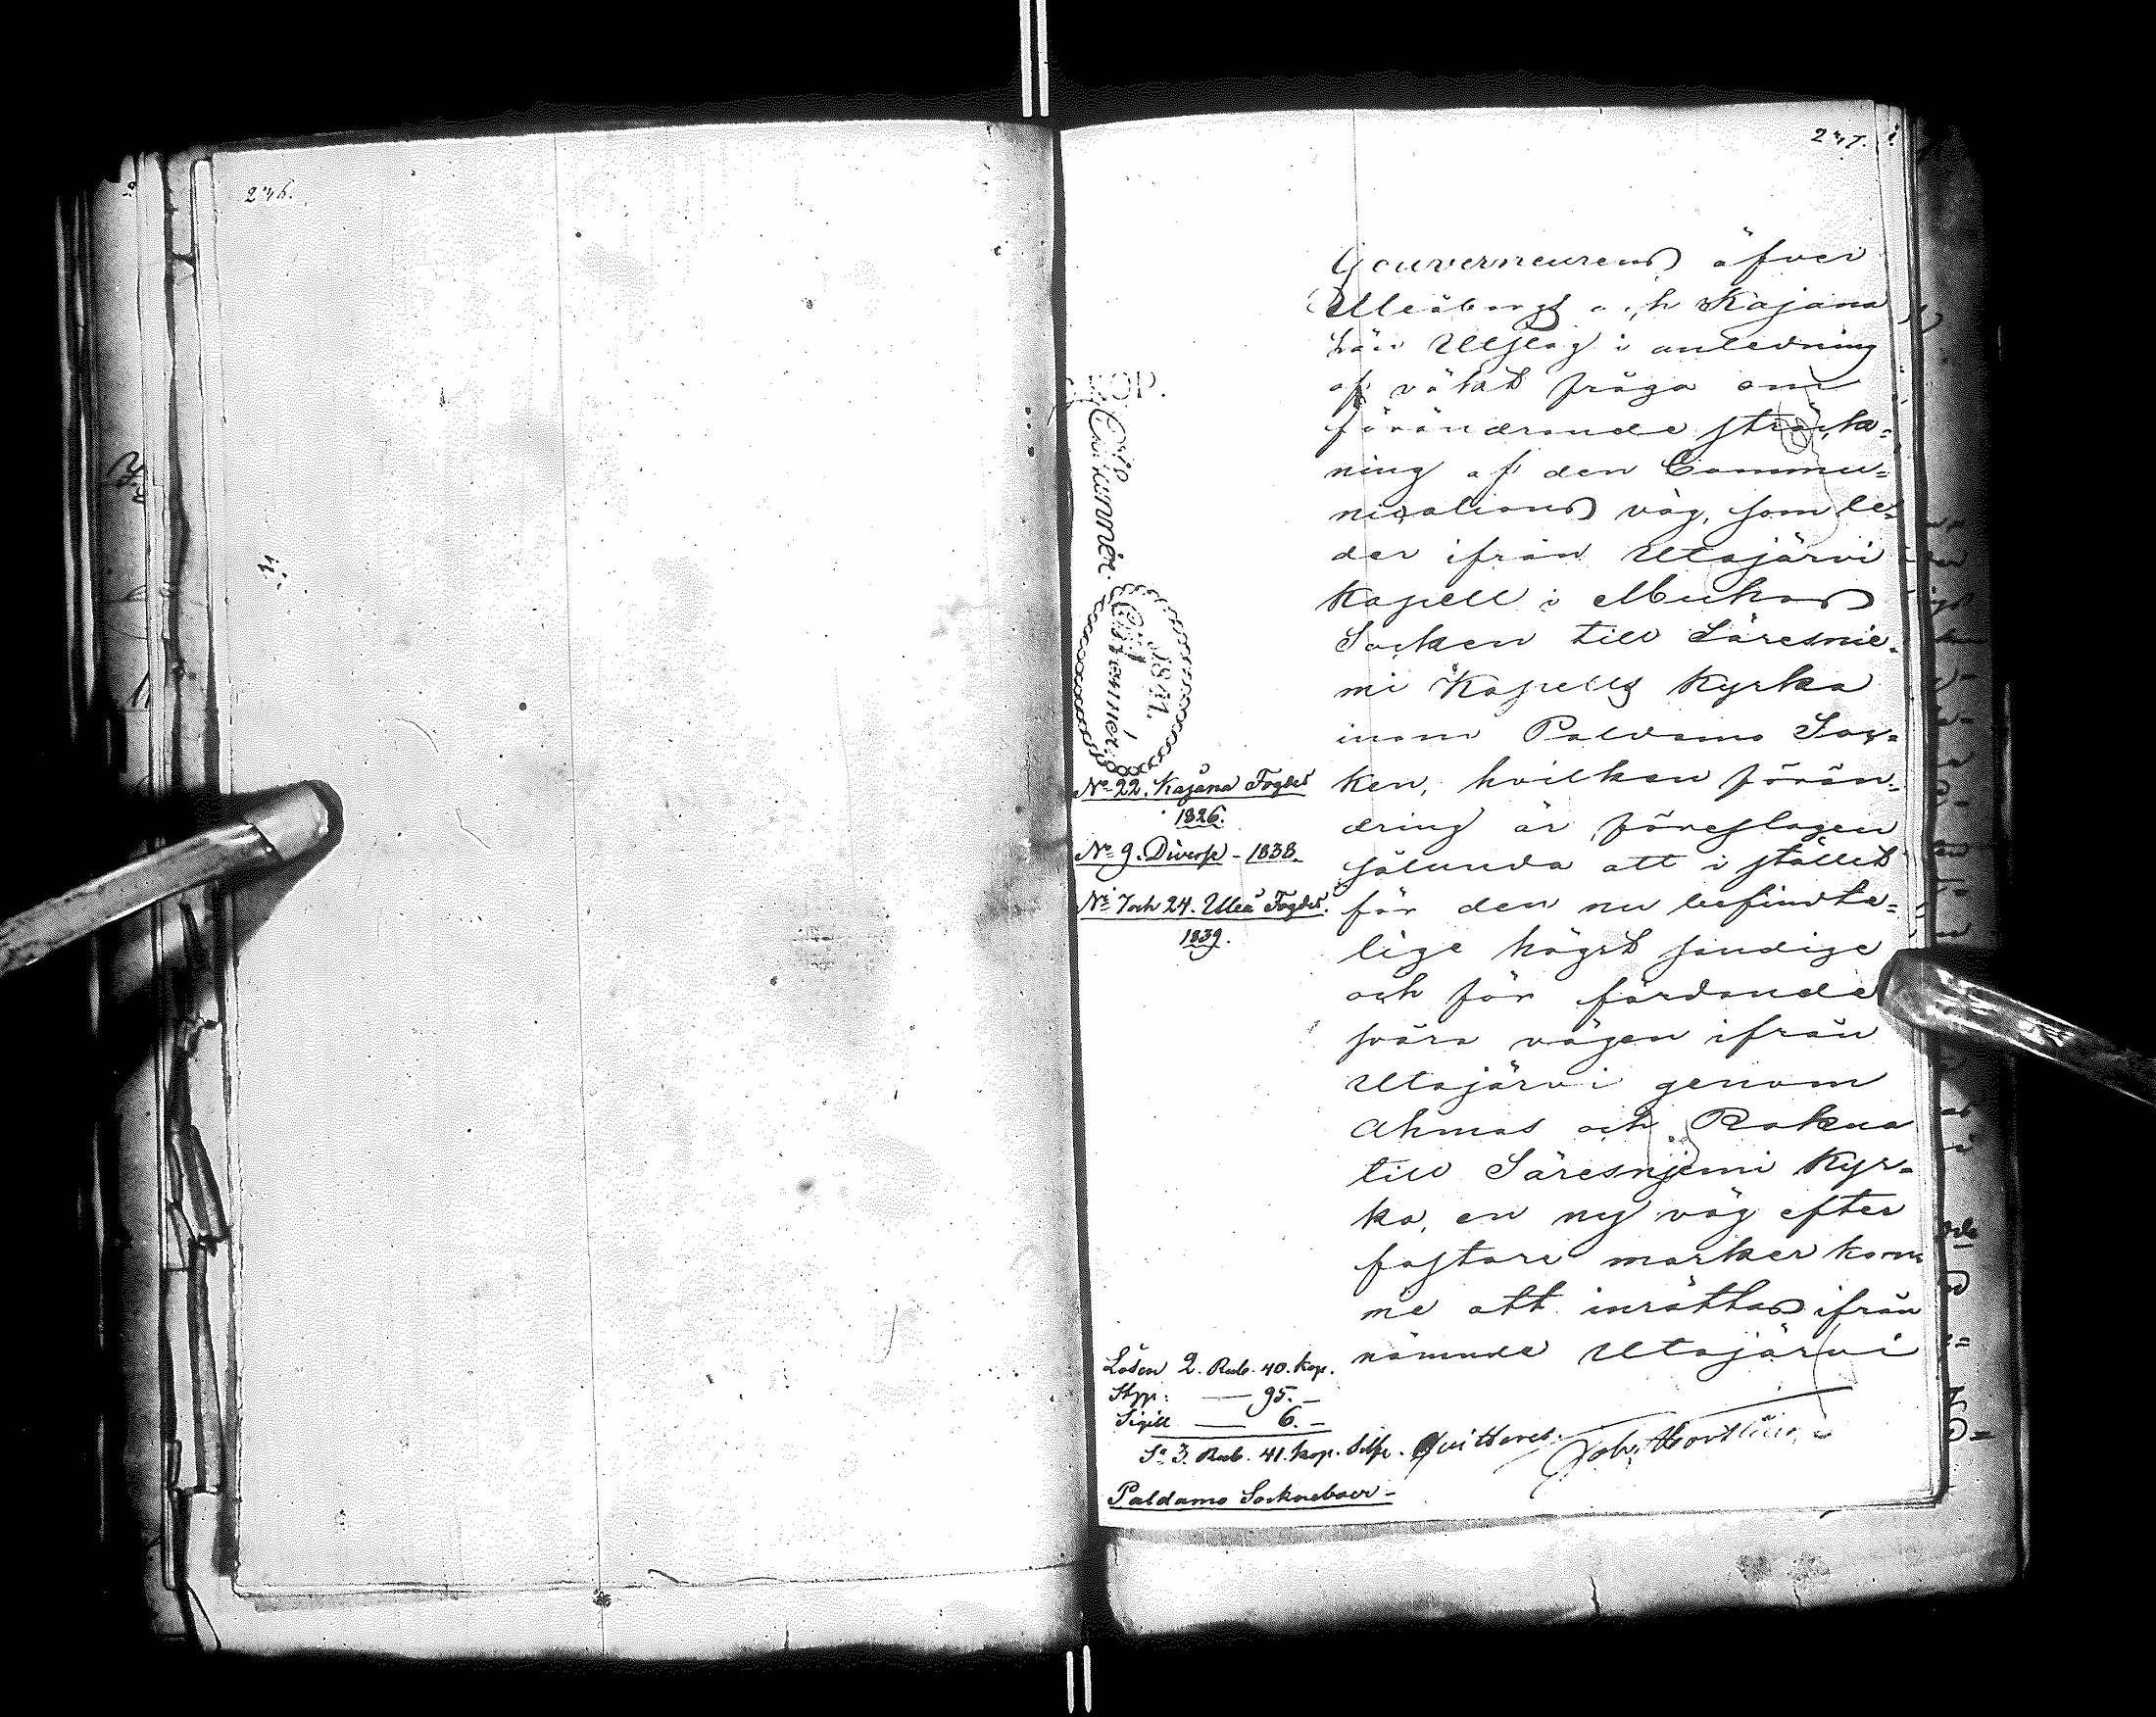 236.
237.
Gouverneurens öfver
Uleåborgs och Kajana
Län Utslag i anledning
af väkt fråga om
förändrande sträck=
ning af den Commu=
nications väg, som le=
der ifrån Utajärvi
Kapell i Muhos
Socken till Säresnie=
mi Kapells Kyrka
inom Paldamo Soc=
ken, hvilken förän=
dring är föreslagen
sålunda att i stället
för den nu befindte=
lige högst sandige
och för färdande
svåra vägen ifrån
Utajärvi genom
Ahmas och Rokua
till Säresnjemi Kyr=
ka, en ny väg efter
fastare marker kom
me att inrättas ifrån
nämnde Utajärvi
KOP.
Cit Kammer.
1841.
No 22. Kajana Fogder
1826.
No 9. Diverse - 1838.
No 7 och 24. Uleå Fogder.
1839.
Lösen 2. Rub. 40. kop.
Stpp: — 95. —
Sigill — 6. —
Sa 3. Rub. 41. kop. Silfr. Quitteres.
Paldamo Sockneboer -